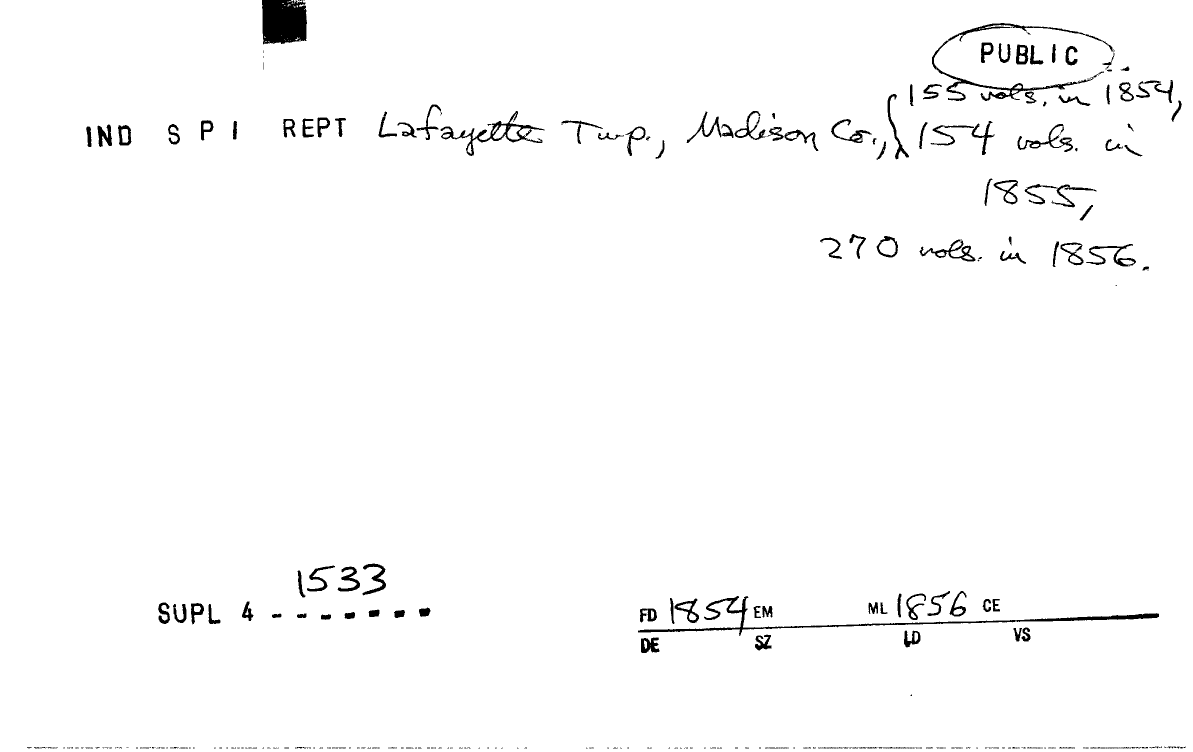 PUBLIC
IND S P I REPT Lafayette Twp., Madison Co., { 155 vols. in 1854,
154 vols. in
1855,
270 vols. in 1856.
1533
SUPL 4 - - - - - - -
FD 1854 EM ML 1856 CE
DE SZ LD VS